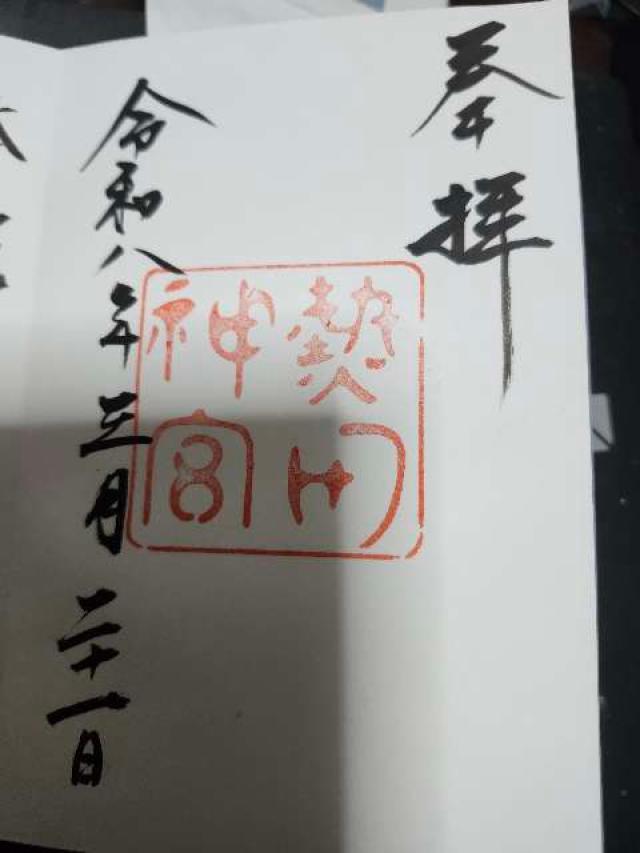 奉拝
熱田
神宮
令和八年三月二十一日